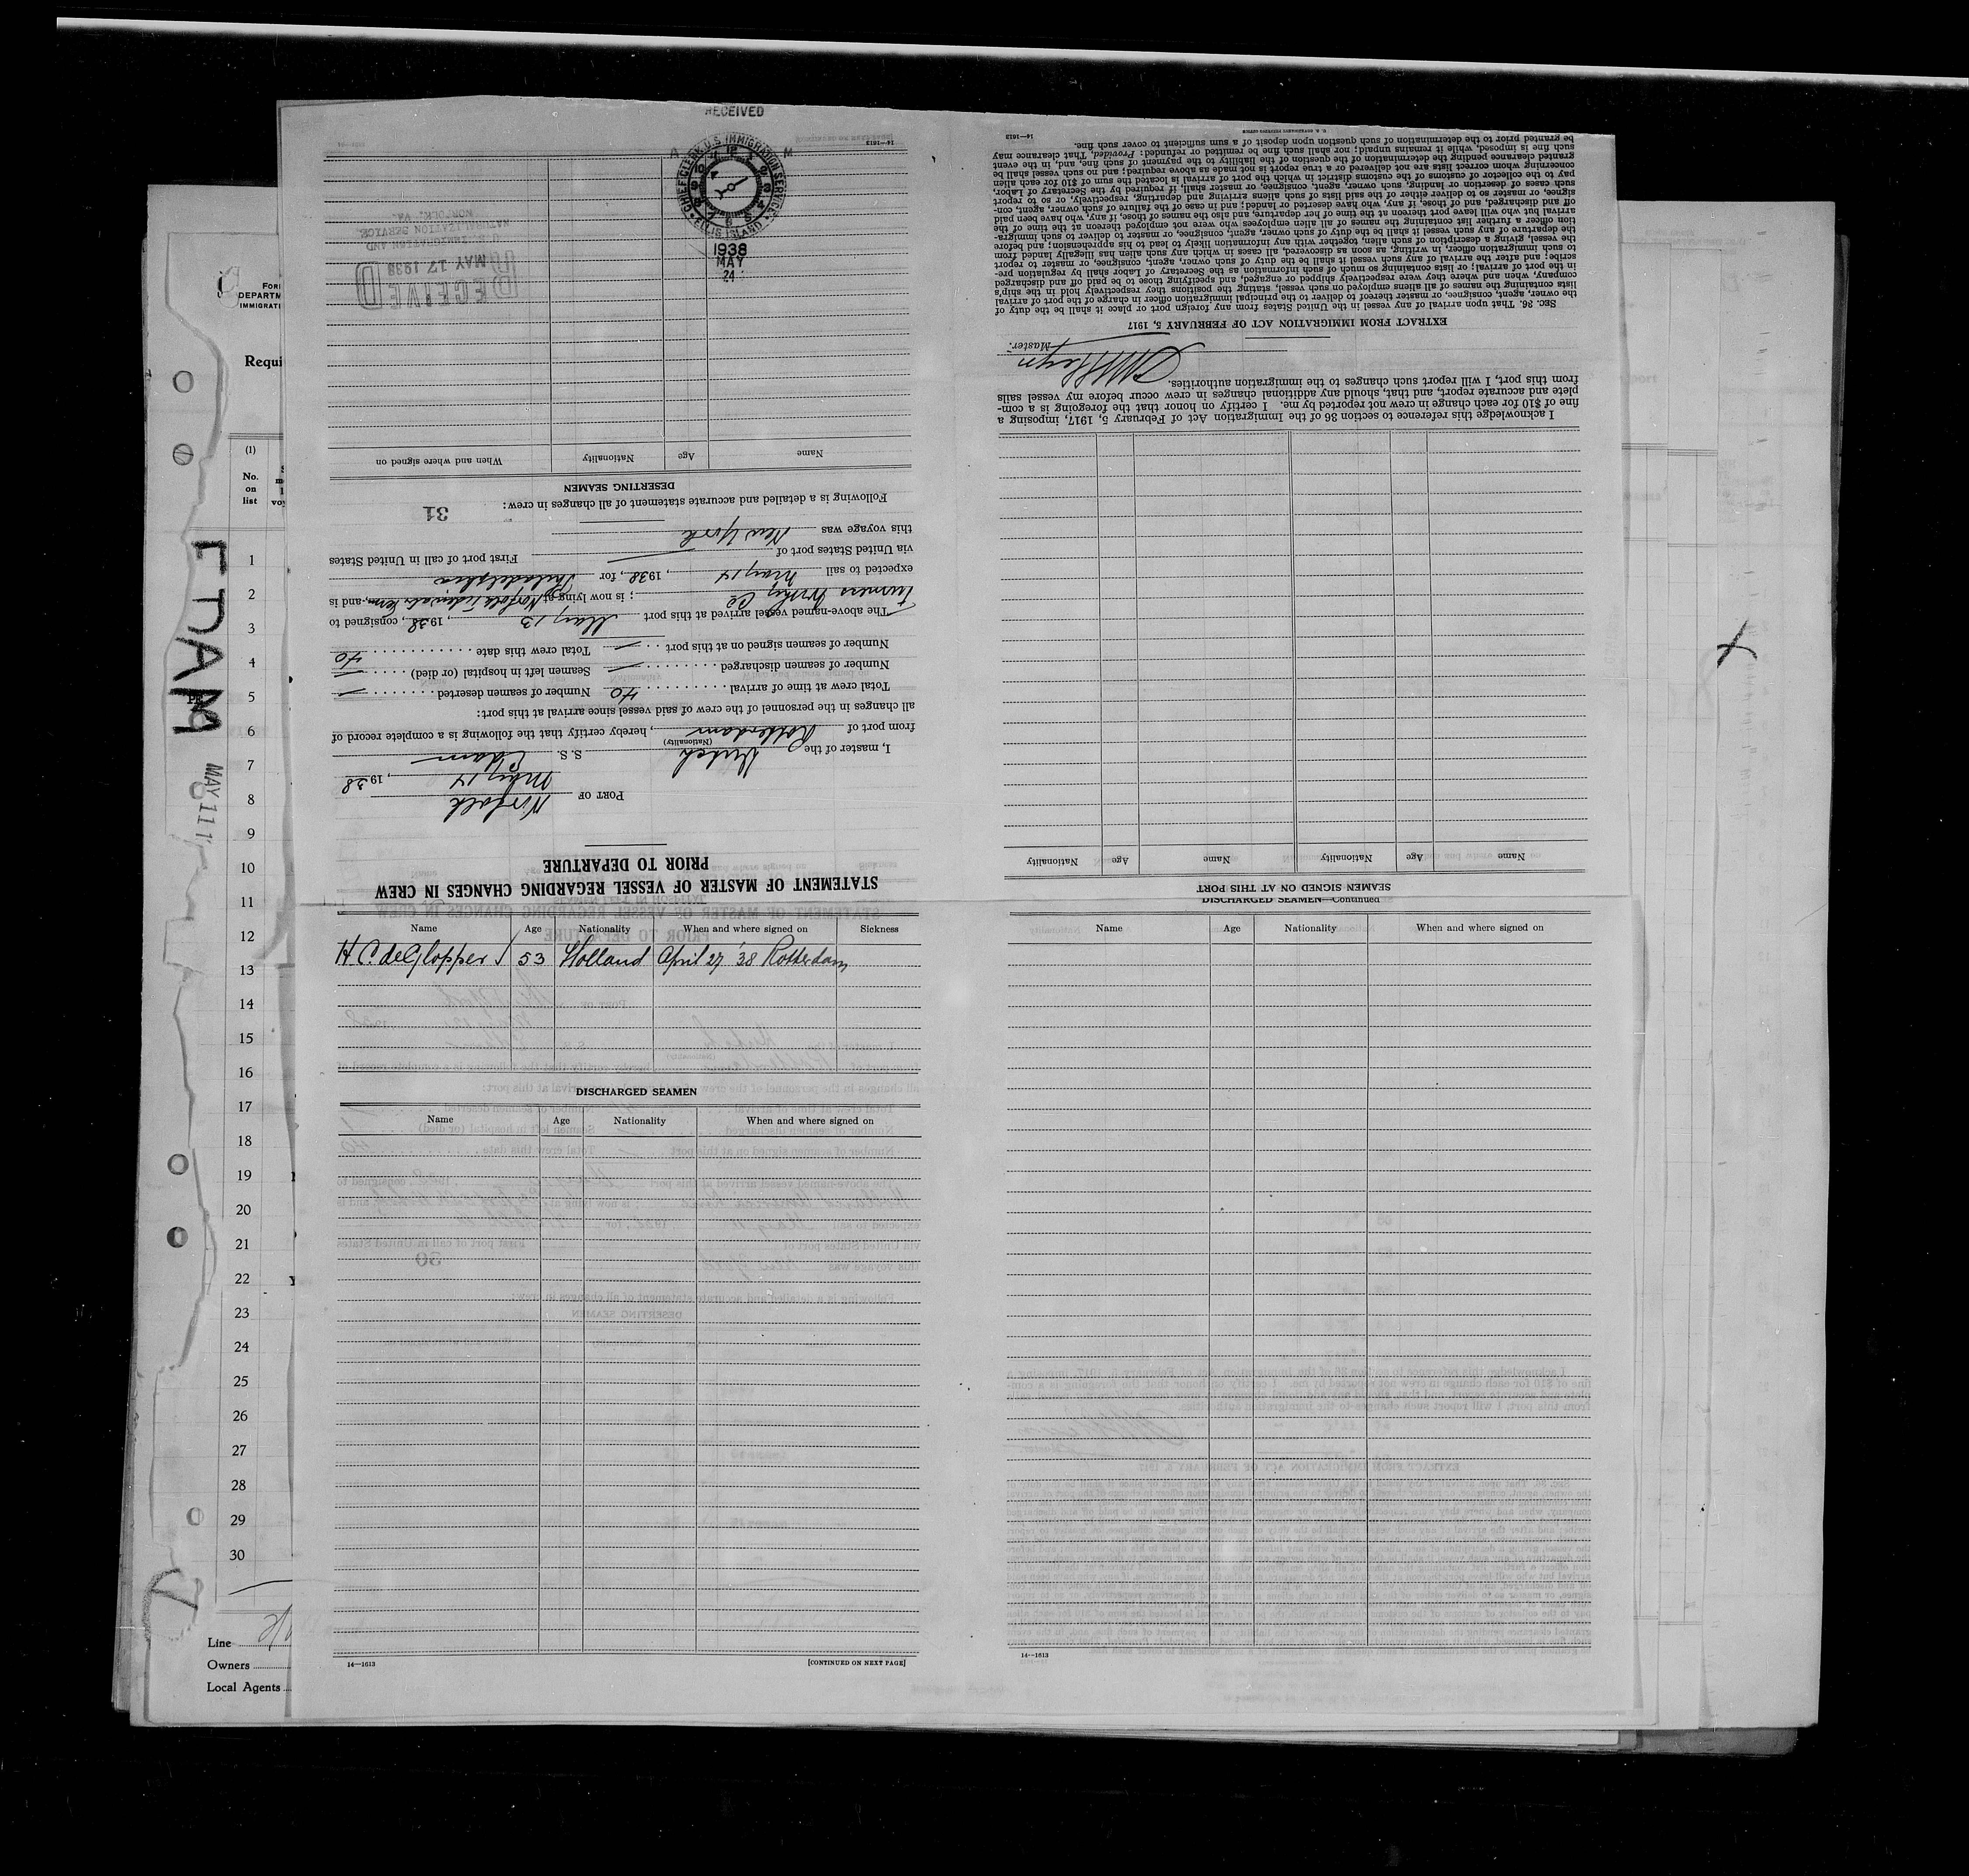 RECEIVED
CHIEF CLERK U.S. IMMIGRATION SERVICE
ELLIS ISLAND
1938
MAY
24
RECEIVED
MAY 17 1938
U.S. IMMIGRATION AND
NATURALIZATION SERVICE
NORFOLK, VA.
STATEMENT OF MASTER OF VESSEL REGARDING CHANGES IN CREW
PRIOR TO DEPARTURE
PORT OF Norfolk
May 14, 1938
I, master of the Dutch S. S. Edam
(Nationality)
from port of Rotterdam, hereby certify that the following is a complete record of
all changes in the personnel of the crew of said vessel since arrival at this port:
Total crew at time of arrival 40 Number of seamen deserted —
Number of seamen discharged — Seamen left in hospital (or died) —
Number of seamen signed on at this port — Total crew this date 40
The above-named vessel arrived at this port May 13, 1938, consigned to
; is now lying at Norfolk, and is
expected to sail May 14, 1938, for Philadelphia
via United States port of — First port of call in United States
this voyage was New York
31
Following is a detailed and accurate statement of all changes in crew:
DESERTING SEAMEN
Name Age Nationality When and where signed on
14—1613
SEAMEN SIGNED ON AT THIS PORT
Name Age Nationality Name Age Nationality
I acknowledge this reference to section 36 of the Immigration Act of February 5, 1917, imposing a
fine of $10 for each change in crew not reported by me. I certify on honor that the foregoing is a com-
plete and accurate report, and that, should any additional changes in crew occur before my vessel sails
from this port, I will report such changes to the immigration authorities.
Master.
EXTRACT FROM IMMIGRATION ACT OF FEBRUARY 5, 1917
SEC. 36. That upon arrival of any vessel in the United States from any foreign port or place it shall be the duty of
the owner, agent, consignee, or master thereof to deliver to the principal immigration officer in charge of the port of arrival
lists containing the names of all aliens employed on such vessel, stating the positions they respectively hold in the ship's
company, when and where they were respectively shipped or engaged, and specifying those to be paid off and discharged
in the port of arrival; or lists containing so much of such information as the Secretary of Labor shall by regulation pre-
scribe; and after the arrival of any such vessel it shall be the duty of such owner, agent, consignee, or master to report
to such immigration officer, in writing, as soon as discovered, all cases in which any such alien has illegally landed from
the vessel, giving a description of such alien, together with any information likely to lead to his apprehension; and before
the departure of any such vessel it shall be the duty of such owner, agent, consignee, or master to deliver to such immigra-
tion officer a further list containing the names of all alien employees who were not employed thereon at the time of the
arrival but who will leave port thereon at the time of her departure, and also the names of those, if any, who have been paid
off and discharged, and of those, if any, who have deserted or landed; and in case of the failure of such owner, agent, con-
signee, or master so to deliver either of the said lists of such aliens arriving and departing, respectively, or so to report
such cases of desertion or landing, such owner, agent, consignee, or master shall, if required by the Secretary of Labor,
pay to the collector of customs of the customs district in which the port of arrival is located the sum of $10 for each alien
concerning whom correct lists are not delivered or a true report is not made as above required; and no such vessel shall be
granted clearance pending the determination of the question of the liability to the payment of such fine, and, in the event
such fine is imposed, while it remains unpaid; nor shall such fine be remitted or refunded: Provided, That clearance may
be granted prior to the determination of such question upon deposit of a sum sufficient to cover such fine.
14—1613
U. S. GOVERNMENT PRINTING OFFICE
Name Age Nationality When and where signed on Sickness
H. C. deGlopper 53 Holland April 27 '38 Rotterdam
DISCHARGED SEAMEN
Name Age Nationality When and where signed on
14—1613
[CONTINUED ON NEXT PAGE]
DISCHARGED SEAMEN—Continued
Name Age Nationality When and where signed on
14—1613
DEPARTM
IMMIGRAT
Requi
(1)
No.
on
list
EDAM
MAY 11
1
2
3
4
5
6
7
8
9
10
11
12
13
14
15
16
17
18
19
20
21
22
23
24
25
26
27
28
29
30
Line
Owners
Local Agents
X